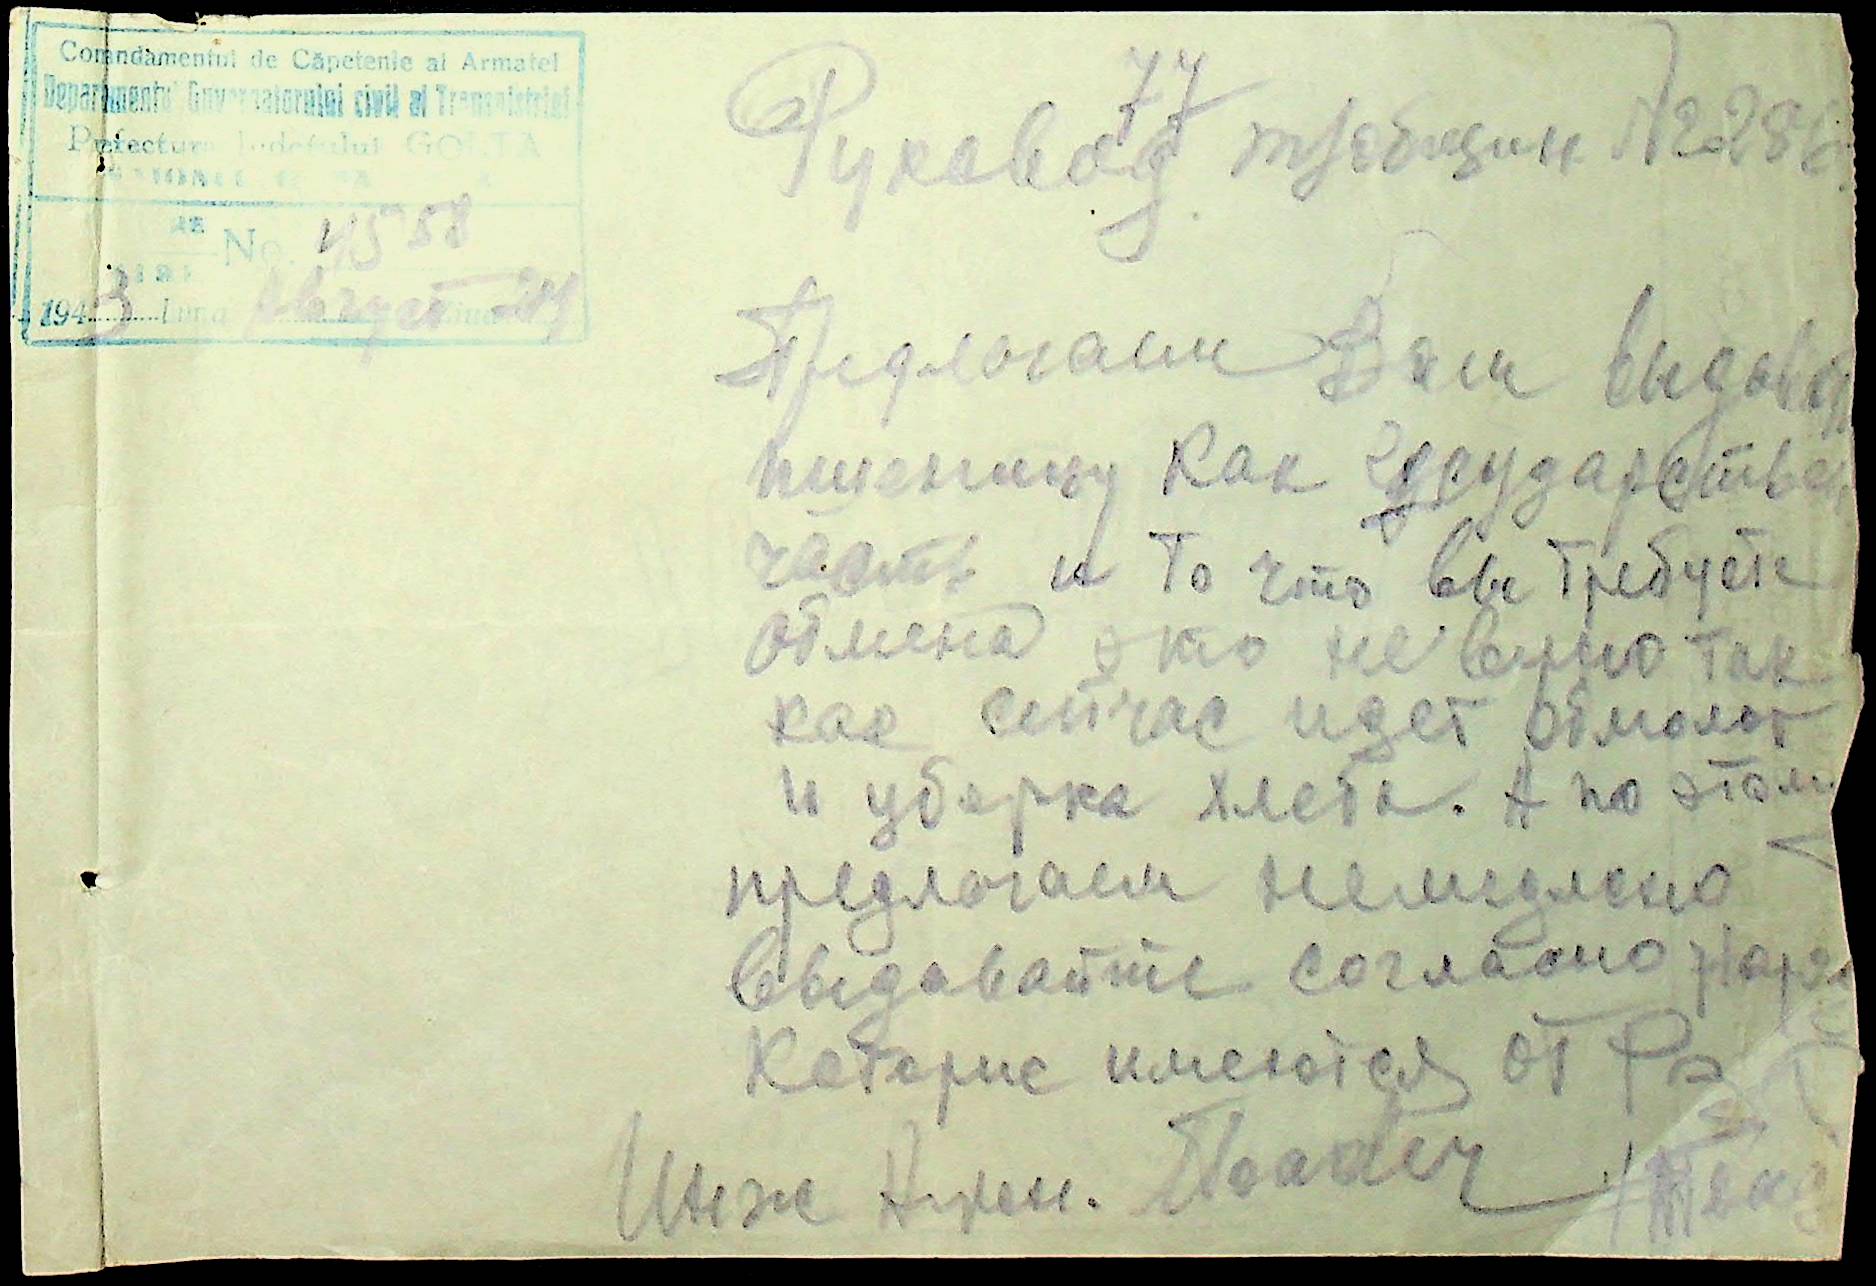 Comandamentul de Căpetenie al Armatei
Departamentul Guvernatorului civil al Transnistriei
Prefectura Județului GOLTA
No. 4558
1943 Luna Август Ziua 24
77
Руковод общин №
Предлогаем Вам выдават
пшеницу как государствен
часть и то что вы требуете
обмена это не верно так
как сейчас идет обмолот
и уборка хлеба. А по этому
предлогаем немедлено
выдавайте согласно наря
которые имеются от Ра
Инж Агрон.